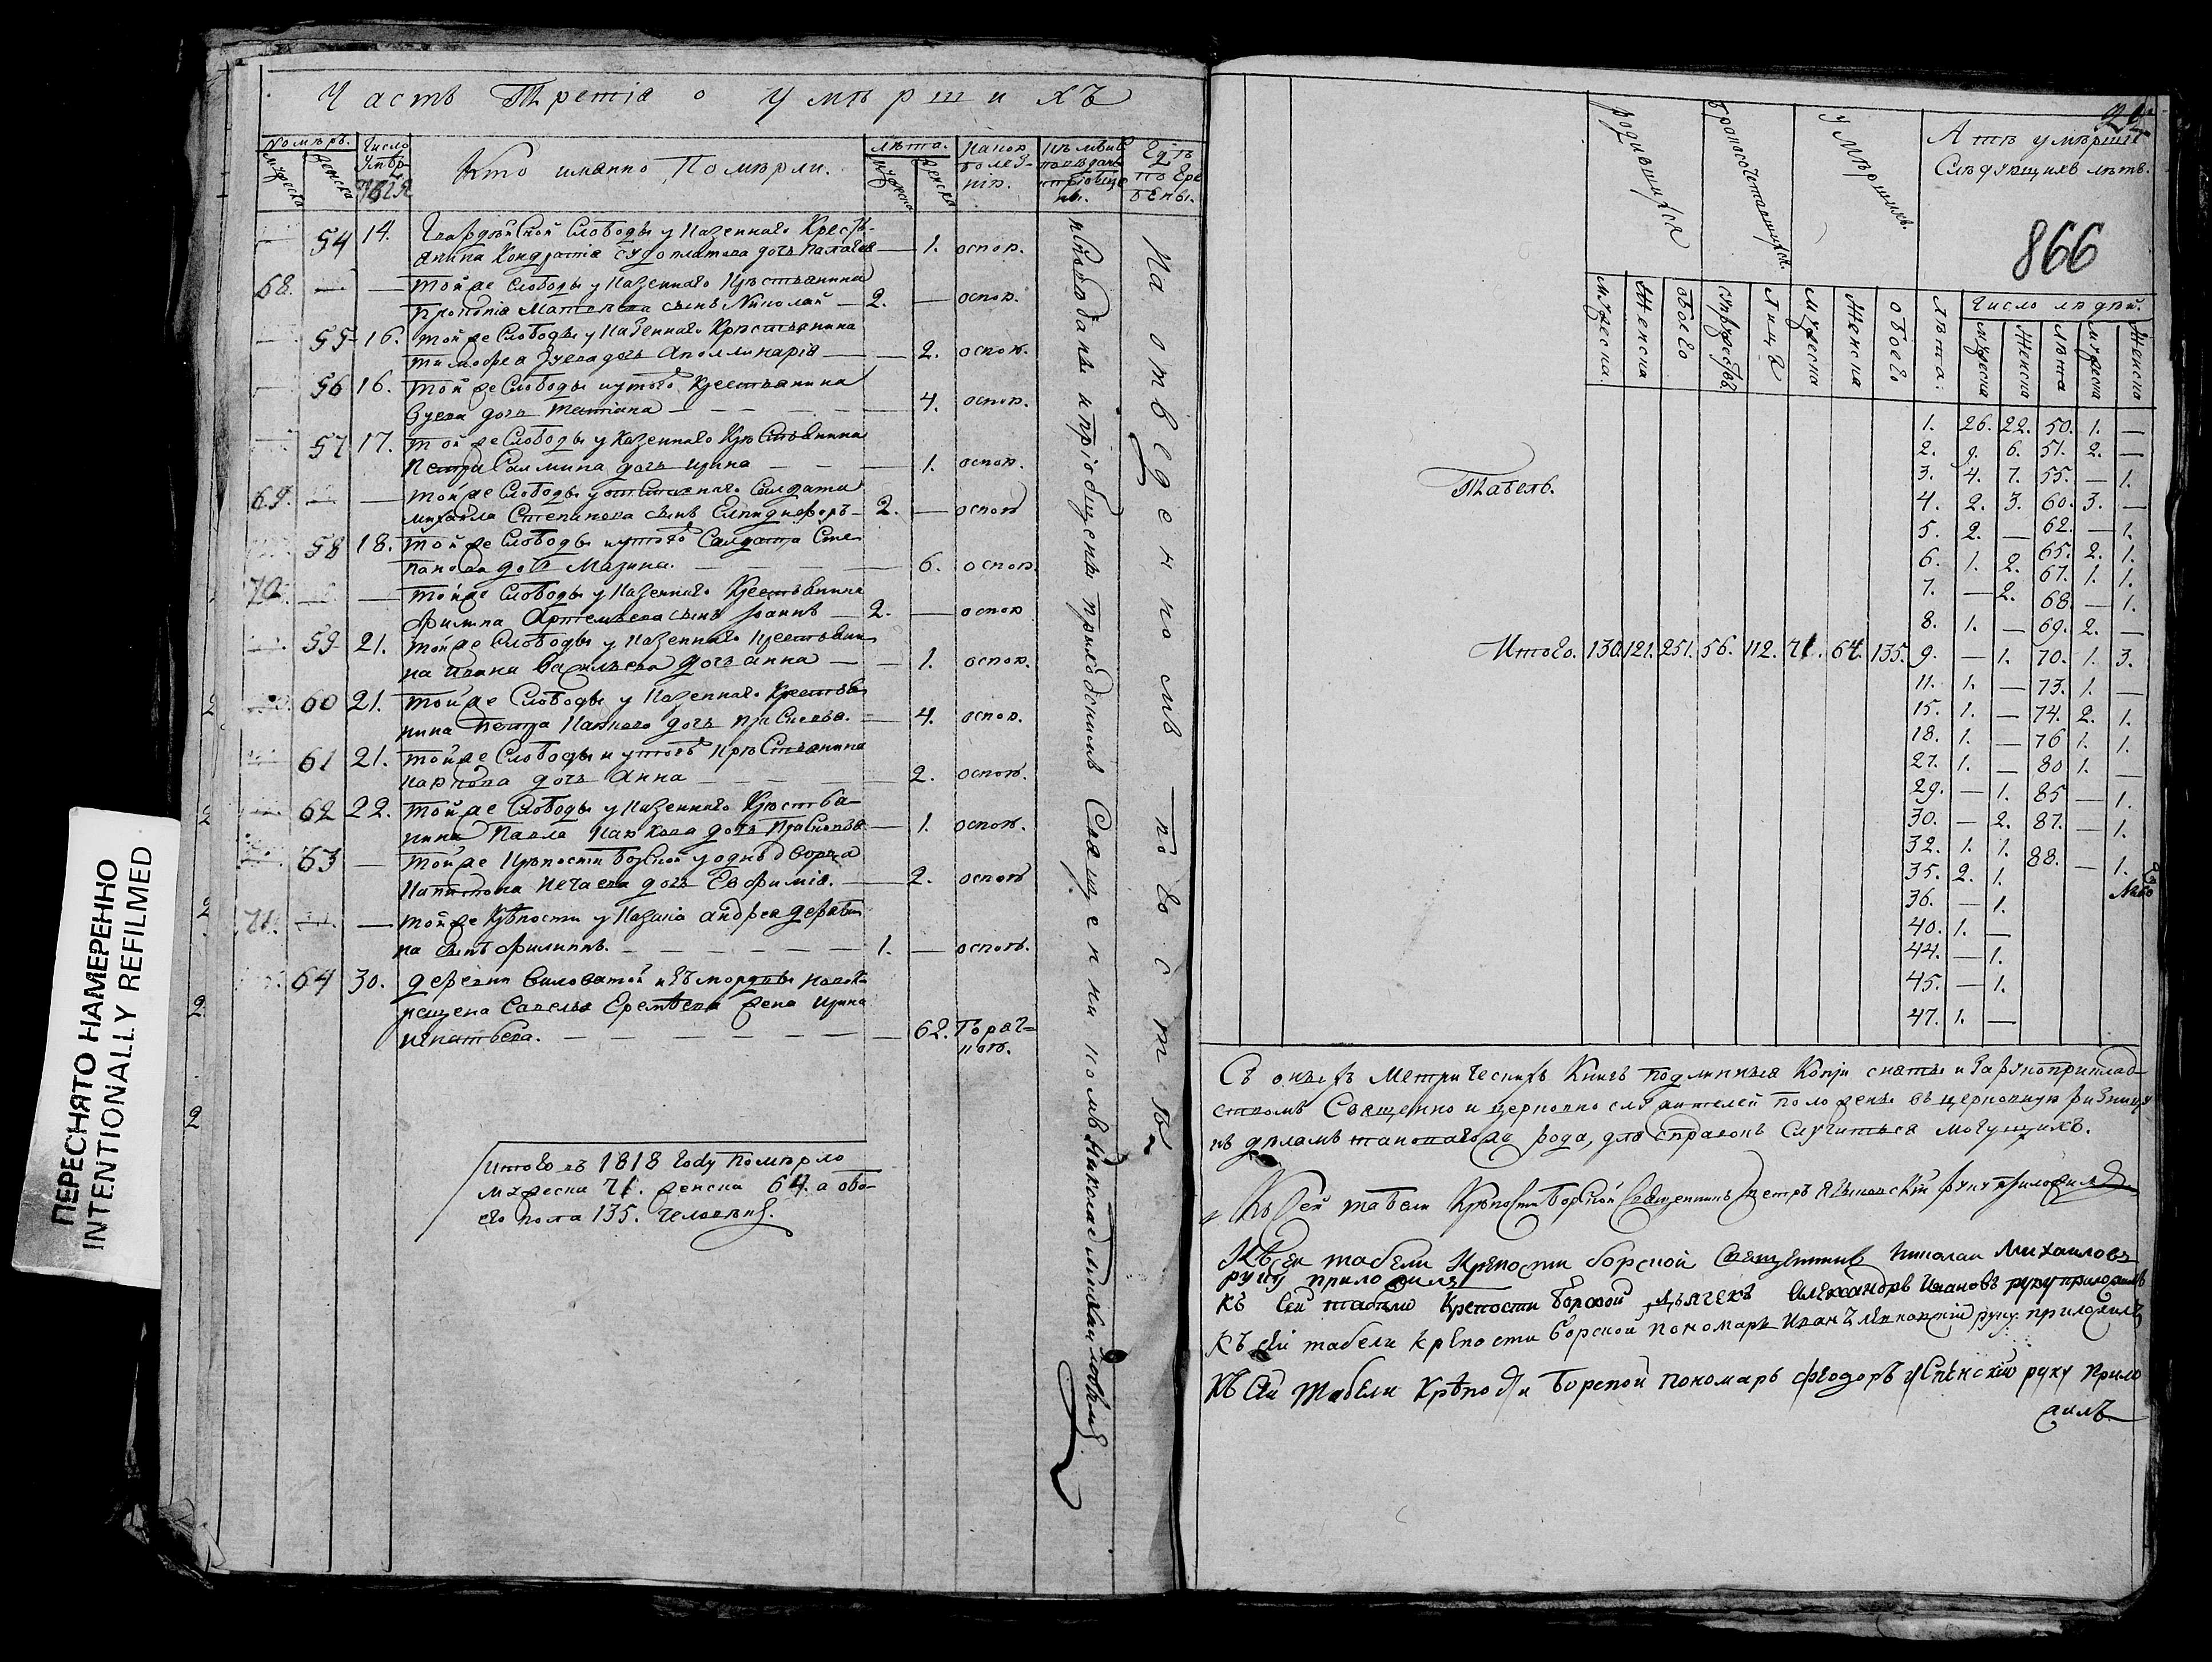 Часть Третіа о умѣршихъ
Номѣръ. Число Лѣта.
мужеска женска
Кто имянно Помѣрли.
54 14. Гвардѣйской Слободы у Казеннаго Кресть-
янина Кондратіа дочь Палагея — 1. оспою.
68. — — тойже Слободы у Казеннаго Крѣстьянина
Прокопіа Матвѣева сынъ Николай — 2. — оспою.
55 16. тойже Слободы у Казеннаго Крѣстьянина
тимофеа Зуева дочь Аполлинаріа — — 2. оспою.
56 16. тойже Слободы и утогожъ Крестьянина
Зуева дочь татіана — — — — 4. оспою.
57 17. тойже Слободы у Казеннаго Крѣстьянина
Петра Салмина дочь ирина — — — 1. оспою.
69. — — тойже Слободы у отставнаго Салдата
михайла Степанова сынъ Елпидифоръ — 2. — оспою
58 18. тойже Слободы и утогожъ Салдата Сте
панова дочь Марина. — — — — 6. оспою.
70. — — тойже Слободы у Казеннаго Крестьянина
филипа Артемьева сынъ Іоаннъ — 2. — оспою
59 21. тойже Слободы у Казеннаго Крестьяни
на ивана Васильева дочь анна — — 1. оспою.
60 21. тойже Слободы у Казеннаго Крестья
нина Петра Каркова дочь Прасковья. — 4. оспою.
61 21. тойже Слободы и утогожъ Крѣстьянина
Каркова дочь Анна — — — — 2. оспою.
62 22. тойже Слободы у Казеннаго Крестья-
нина Павла Каркова дочь Прасковья — 1. оспою.
63 — тойже Крѣпости борской у однодворца
Капитона Нечаева дочь Евфиміа. — 2. оспою
71. — — тойже Крѣпости у Казака андрея
на сынъ филиппъ. — — — — 1. — оспою.
64 30. деревни Виловатой изъ мордвы новок-
рещена Савелья Еремѣева жена ирина
игнатьева. — — — — — — 62. Горяч-
кою.
исповѣданы и пріобщены приходскимъ Священникомъ Николаемъ михайловымъ
На отведенномъ погостѣ
итого въ 1818 году помѣрло
мужеска 71. женска 64. а обо-
его пола 135. Человѣкъ.
родившихся бракосочетавшихся. умѣршихъ. А тѣ умѣршіе
Слѣдующихъ лѣтъ.
866
мужеска. Женска обоего супружествъ Лицъ мужеска Женска обоего Лѣта. Число людей.
мужеска Женска Лѣта мужеска Женска
Табель.
1. 26. 22. 50. 1. —
2. 9. 6. 51. 2. —
3. 4. 7. 55. — 1.
4. 2. 3. 60. 3. —
5. 2. — 62. — 1.
6. 1. 2. 65. 2. 1.
7. — 2. 67. 1. 1.
68. — 1.
8. 1. — 69. 2. —
Итого. 130. 121. 251. 56. 112. 71. 64. 135. 9. — 1. 70. 1. 3.
11. 1. — 73. 1. —
15. 1. — 74. 2. 1.
18. 1. — 76 1. 1.
27. 1. — 80 1. —
29. — 1. 85 — 1.
30. — 2. 87. — 1.
32. 1. 1. 88. — 1.
35. 2. 1.
36. — 1.
40. 1. —
44. — 1.
45. — 1.
47. 1. —
Съ оныхъ Метрическихъ Книгъ подлинныя Копіи сняты и зарукоприклад-
ствомъ Священно и церковно служителей положены въ церковную ризницу
къ дѣламъ таковагожа рода, для справокъ Случиться могущихъ.
Къ Сей табели Крѣпости борской Священникъ петръ руку приложилъ
Къ сеи табели Крепости борской Священникъ Николаи Михаиловъ
руку приложилъ
Къ Сей табели Крепости борской дьячекъ Александръ Ивановъ руку приложилъ
Къ сей табели крепости борской пономарь Иванъ руку приложилъ
Къ Сей табели Крѣпости борской пономарь Феодоръ Успѣнскій руку прило
жилъ
ПЕРЕСНЯТО НАМЕРЕННО
INTENTIONALLY REFILMED